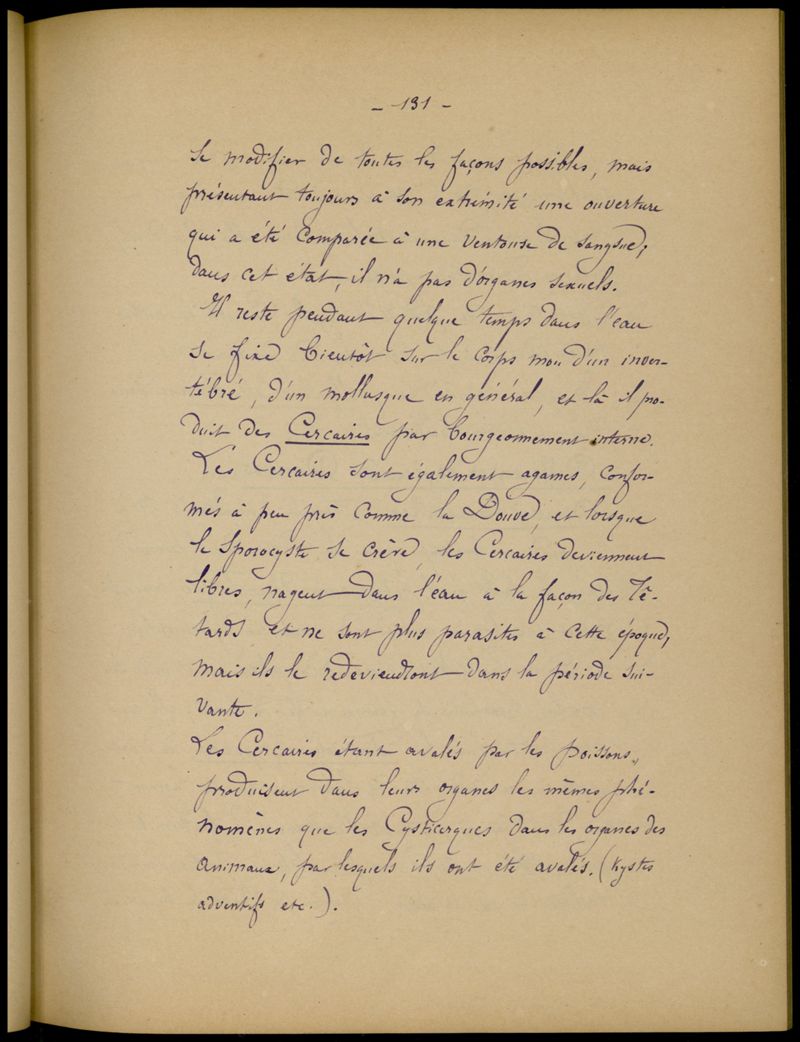 - 131 -
se modifier de toutes les façons possibles, mais
présentant toujours à son extrémité une ouverture
qui a été comparée à une ventouse de sangsue,
dans cet état, il n'a pas d'organes sexuels.
Il reste pendant quelque temps dans l'eau
se fixe bientôt sur le corps mou d'un inver-
tébré, d'un mollusque en général, et là il pro-
duit des Cercaires par bourgeonnement interne.
Les Cercaires sont également agames, confor-
més à peu près comme la Douve, et lorsque
le Sporocyste se crève, les Cercaires deviennent
libres, nagent dans l'eau à la façon des Tê-
tards et ne sont plus parasites à cette époque,
mais ils le redeviendront dans la période sui-
vante.
Les Cercaires étant avalés par les poissons,
produisent dans leurs organes les mêmes phé-
nomènes que les Cysticerques dans les organes des
animaux, par lesquels ils ont été avalés. (Kystes
adventifs etc.).